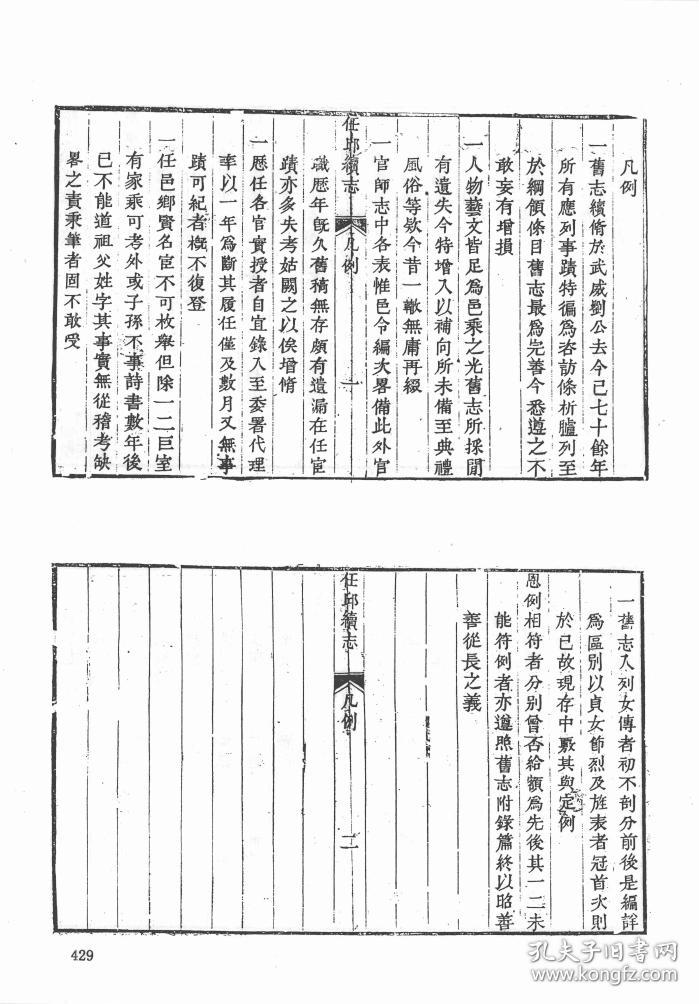 凡例
一舊志續脩於武威劉公去今已七十餘年
所有應列事蹟特徧爲咨訪條析臚列至
於綱領條目舊志最爲完善今悉遵之不
敢妄有增損
一人物藝文皆足爲邑乘之光舊志所採間
有遺失今特增入以補向所未備至典禮
風俗等欵今昔一轍無庸再綴
任邱續志
凡例
一
一官師志中各表惟邑令編次畧備此外官
職歷年旣久舊稿無存頗有遺漏在任宦
蹟亦多失考姑闕之以俟增脩
一歷任各官實授者自宜錄入至委署代理
率以一年爲斷其履任僅及數月又無事
蹟可紀者槪不復登
一任邑鄉賢名宦不可枚舉但除一二巨室
有家乘可考外或子孫不事詩書數年後
已不能道祖父姓字其事實無從稽考缺
畧之責秉筆者固不敢受
一舊志入列女傳者初不剖分前後是編詳
爲區別以貞女節烈及旌表者冠首次則
於已故現存中覈其與定例
恩例相符者分別曾否給額爲先後其一二未
能符例者亦遵照舊志附錄篇終以昭善
善從長之義
任邱續志
凡例
二
429
孔夫子旧书网
www.kongfz.com